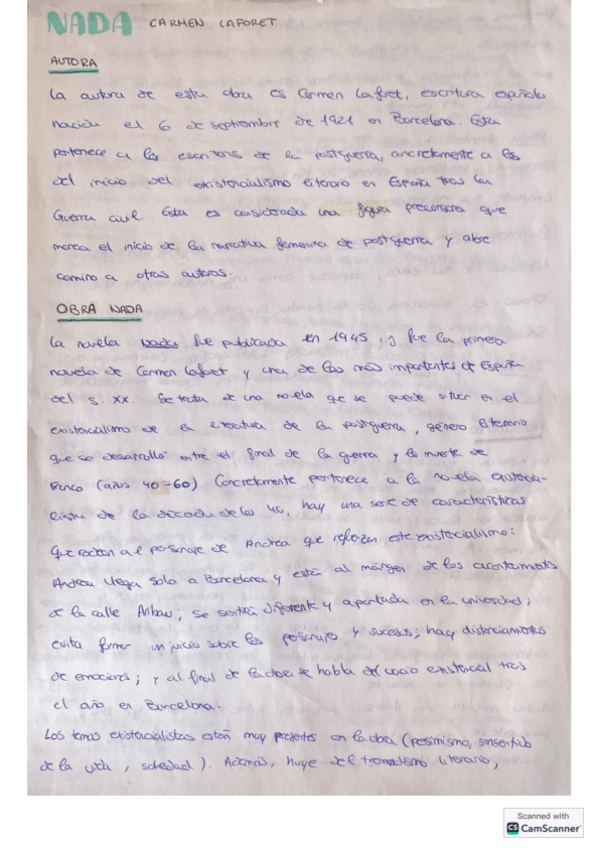 NADA CARMEN LAFORET
AUTORA
La autora de esta obra es Carmen Laforet, escritora española
nacida el 6 de septiembre de 1921 en Barcelona. Esta
pertenece a los escritores de la postguerra, concretamente a los
del inicio del existencialismo literario en España tras la
Guerra civil. Esta es considerada una figura precursora que
marca el inicio de la narrativa femenina de postguerra y abre
camino a otras autoras.
OBRA NADA
La novela Nada fue publicada en 1945, y fue la primera
novela de Carmen Laforet y una de las más importantes de España
del s. XX. Se trata de una novela que se puede situar en el
existencialismo de la literatura de la postguerra, género literario
que se desarrolló entre el final de la guerra y la muerte de
Franco (años 40-60) Concretamente pertenece a la novela
de la década de los 40, hay una serie de características
que rodean al personaje de Andrea que refuerzan este existencialismo:
Andrea llega sola a Barcelona y está al márgen de los
de la calle Aribau; se sentía diferente y apartada en la universidad;
evita formar un juicio sobre los personajes y sucesos; hay distanciamientos
de emociones; y al final de la obra se habla del vacío existencial tras
el año en Barcelona.
Los temas existencialistas están muy presentes en la obra (pesimismo, sinsentido
de la vida, soledad). Además, huye del literario,
Scanned with
CS CamScanner